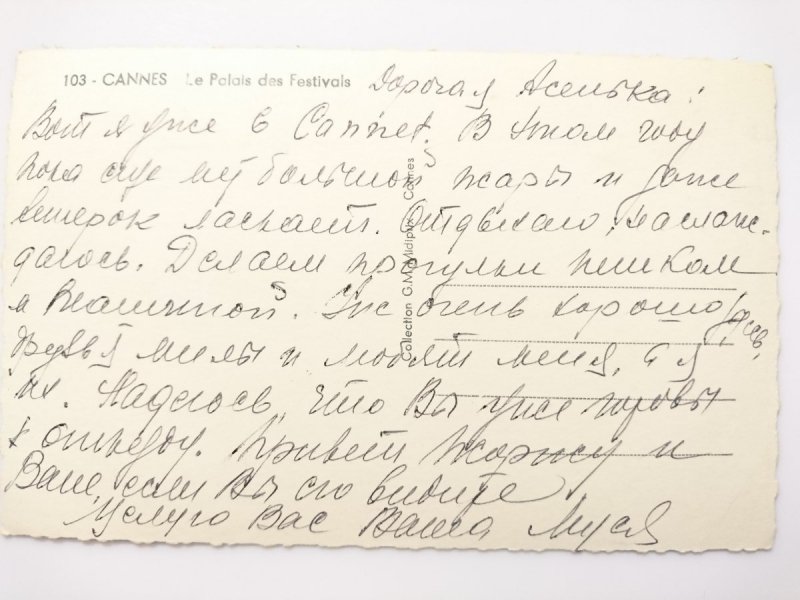 103 - CANNES Le Palais des Festivals
Дорогая Асенька!
Вот я уже в Cannet. В этом году
пока еще нет большой жары и даже
ветерок ласкает. Отдыхаю, наслаж-
даюсь. Делаем прогулки пешком
и машиной. Уже очень хорошо
друзья милы и любят меня, а я
их. Надеюсь, что Вы уже готовы
к отъезду. Привет Жоржу и
Ване, если Вы его видите
Целую Вас Ваша Муся
Collection G.M. Midipux - Cannes